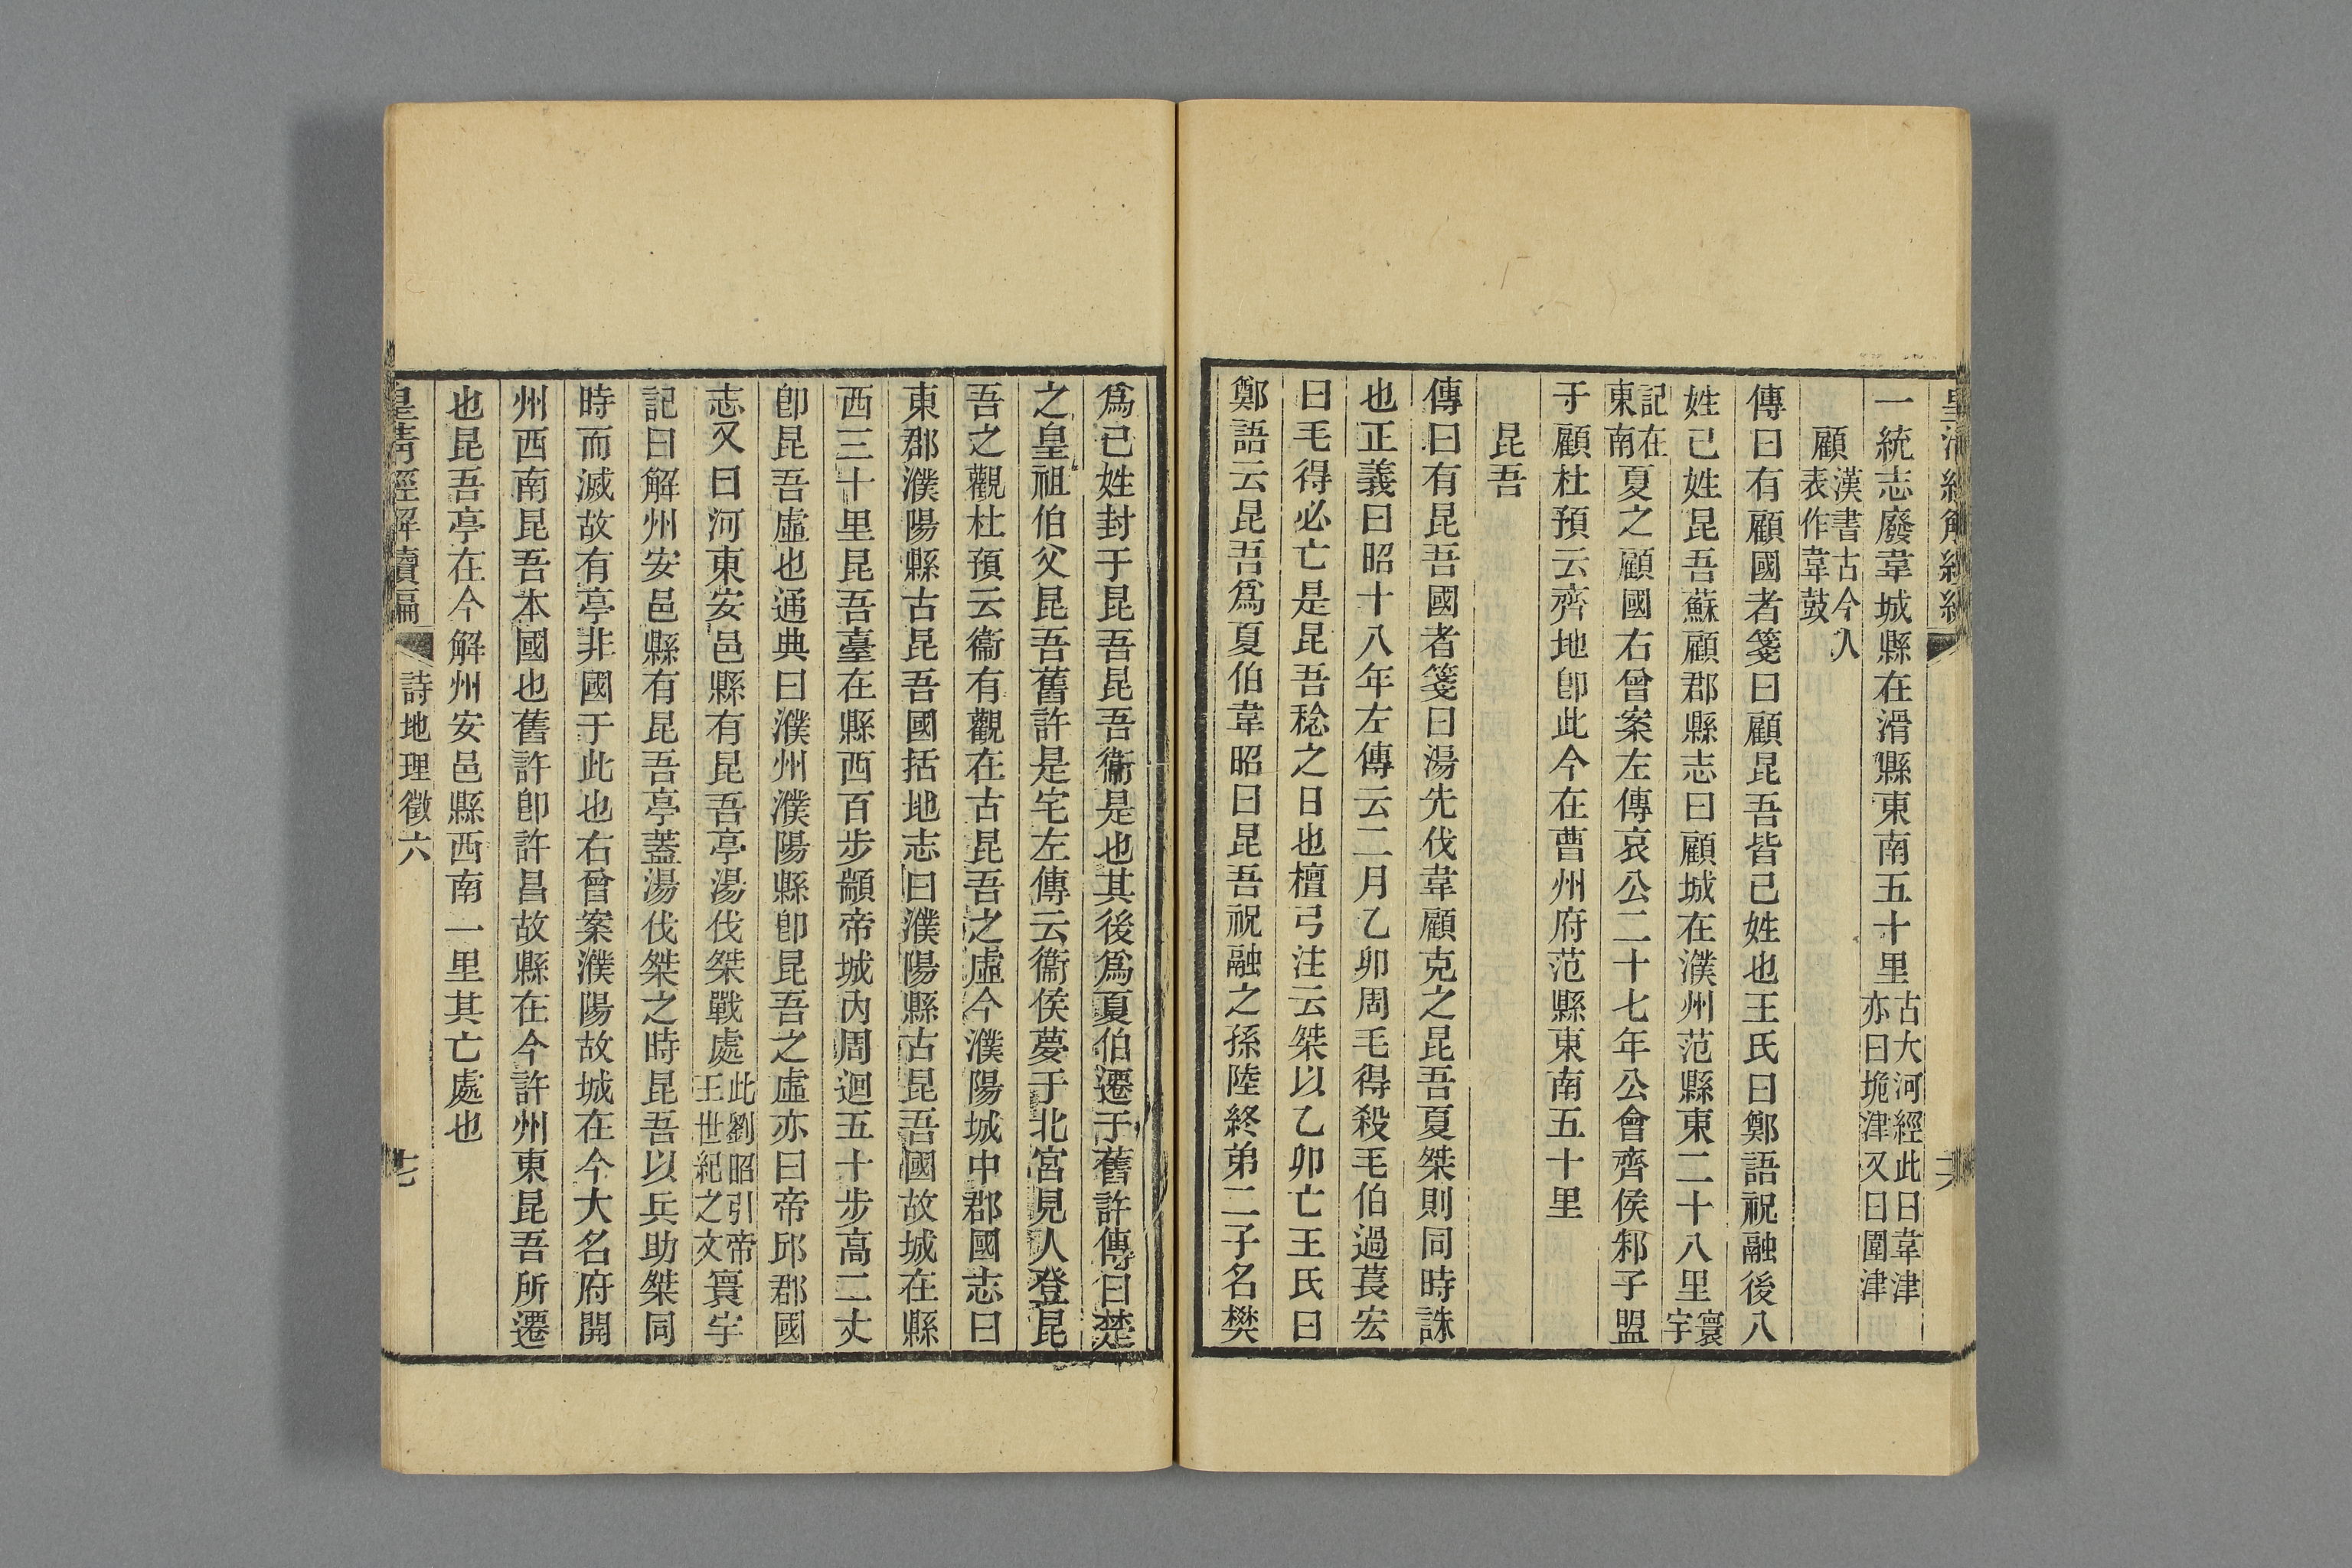 一統志廢韋城縣在滑縣東南五十里古大河經此曰韋津亦曰垝津又曰圍津
顧漢書古今人表作韋鼓
傳曰有顧國者箋曰顧昆吾皆己姓也王氏曰鄭語祝融後八
姓己姓昆吾蘇顧郡縣志曰顧城在濮州范縣東二十八里寰宇
記在東南夏之顧國右曾案左傳哀公二十七年公會齊侯邾子盟
于顧杜預云齊地卽此今在曹州府范縣東南五十里
昆吾
傳曰有昆吾國者箋曰湯先伐韋顧克之昆吾夏桀則同時誅
也正義曰昭十八年左傳云二月乙卯周毛得殺毛伯過萇宏
曰毛得必亡是昆吾稔之日也檀弓注云桀以乙卯亡王氏曰
鄭語云昆吾爲夏伯韋昭曰昆吾祝融之孫陸終弟二子名樊
爲己姓封于昆吾昆吾衞是也其後爲夏伯遷于舊許傳曰楚
之皇祖伯父昆吾舊許是宅左傳云衞侯夢于北宮見人登昆
吾之觀杜預云衞有觀在古昆吾之虛今濮陽城中郡國志曰
東郡濮陽縣古昆吾國括地志曰濮陽縣古昆吾國故城在縣
西三十里昆吾臺在縣西百步顓帝城內周迴五十步高二丈
卽昆吾虛也通典曰濮州濮陽縣卽昆吾之虛亦曰帝邱郡國
志又曰河東安邑縣有昆吾亭湯伐桀戰處此劉昭引帝王世紀之文寰宇
記曰解州安邑縣有昆吾亭蓋湯伐桀之時昆吾以兵助桀同
時而滅故有亭非國于此也右曾案濮陽故城在今大名府開
州西南昆吾本國也舊許卽許昌故縣在今許州東昆吾所遷
也昆吾亭在今解州安邑縣西南一里其亡處也
皇淸經解續編 詩地理徵六 七